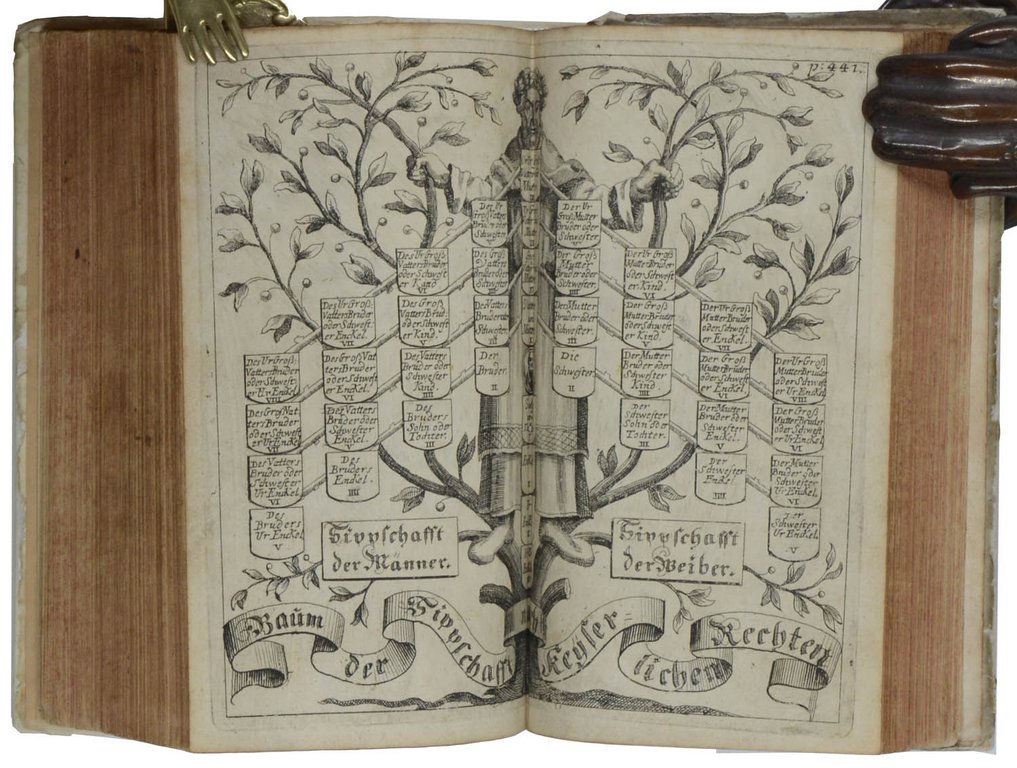 p: 441.
Der Ur
Groß Mutter
Bruder oder
Schwester
V
Des Groß
Vatters
Bruder oder
Schwester
IIII
Der Groß
Mutter
Bruder oder
Schwester.
IIII
Des Ur Groß
Vatters Bruder
oder Schwest
er Kind.
VI
Der Ur Groß
Mutter Bruder
oder Schwest
er Kind.
VI
Des Ur Groß
Vatters Bruder
oder Schwest
er Enckel.
VII
Des Groß
Vatters Brud.
oder Schwest
er Kind.
V
Des Vatters
Bruder oder
Schwester.
III
Des Mutter
Bruder oder
Schwester.
III
Der Groß
Mutter Bruder
oder Schwest
er Kind.
V
Der Ur Groß
Mutter Bruder
oder Schwest
er Enckel.
VII
Des Ur Groß
Vatters Bruder
oder Schwest
er Ur Enckel
VIII
Des Groß Vat
ters Bruder
oder Schwest
er Enckel.
VI
Des Vatters
Bruder oder
Schwester
Kind.
IIII
Der
Bruder.
II
Die
Schwester
II
Der Mutter
Bruder oder
Schwester
Kind.
IIII
Der Groß
Mutter Bruder
oder Schwest
er Enckel.
VI
Der Ur Groß
Mutter Bruder
oder Schwest
er Ur Enckel
VIII
Des Groß Vat
ters Bruder
oder Schwest
er Ur Enckel
VII
Des Vatters
Bruder oder
Schwester
Enckel.
V
Des
Bruders
Sohn oder
Tochter.
III
Der
Schwester
Sohn oder
Tochter.
III
Der Mutter
Bruder oder
Schwester
Enckel.
V
Der Groß
Mutter Bruder
oder Schwest
er Ur Enckel.
VII
Des Vatters
Bruder oder
Schwester
Ur Enckel
VI
Des
Bruders
Enckel.
IIII
Der
Schwester
Enckel.
IIII
Der Mutter
Bruder oder
Schwester
Ur Enckel.
VI
Des
Bruders
Ur Enckel
V
Der
Schwester
Ur Enckel.
V
Sippschafft
der Männer.
Sippschafft
der Weiber.
Baum der Sippschafft Keyserlichen Rechten